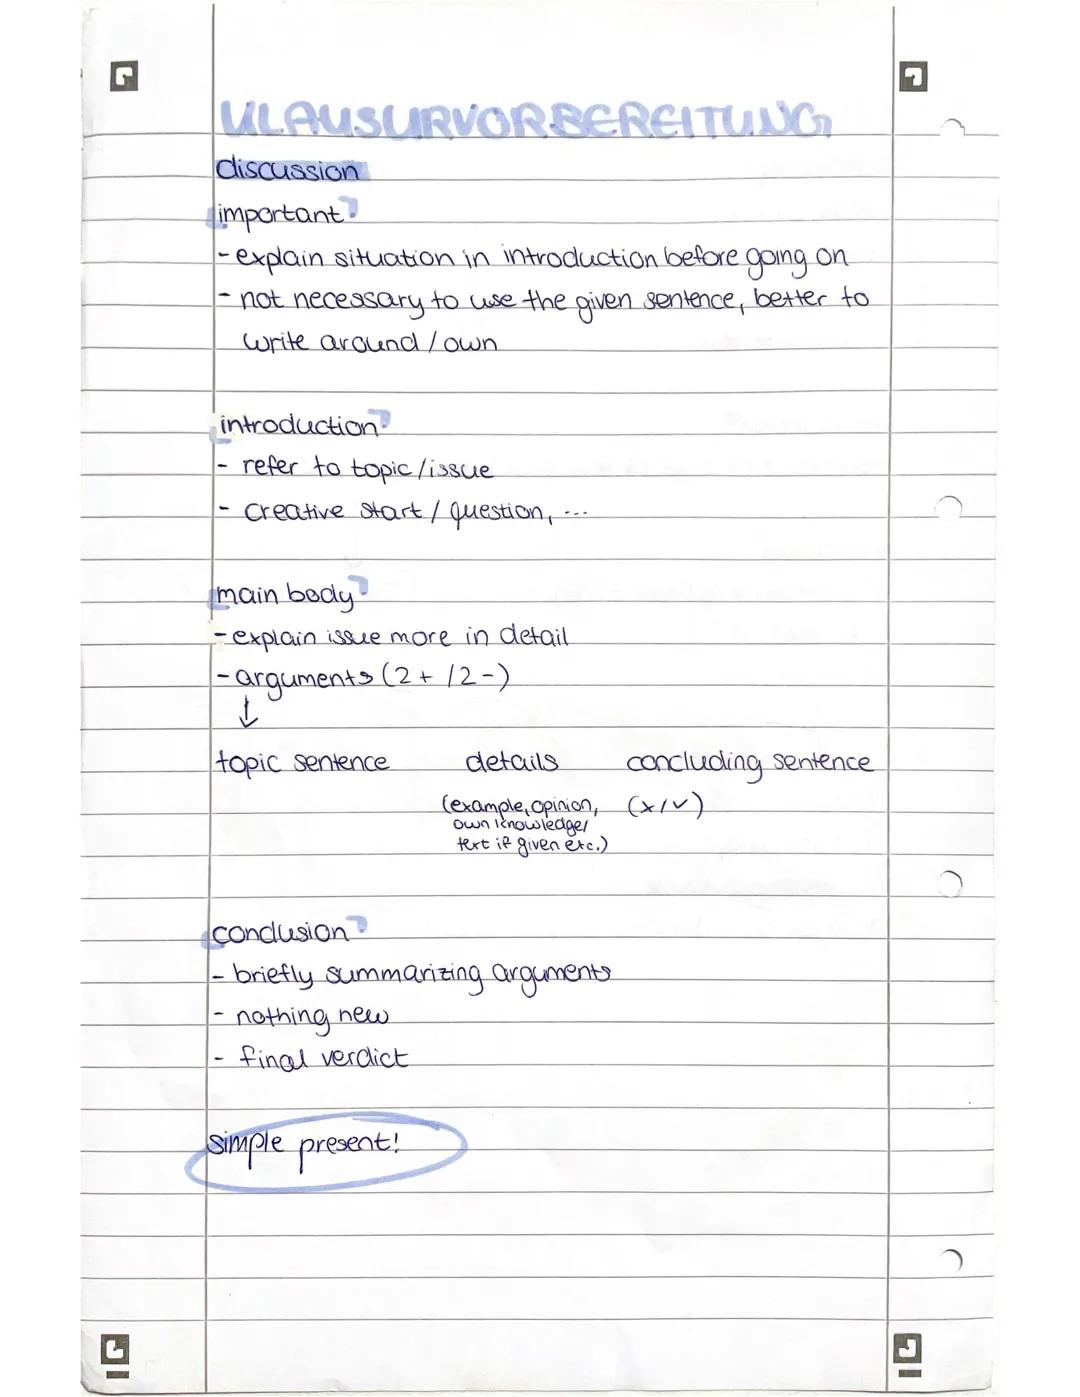 KLAUSURVORBEREITUNG
discussion
important
- explain situation in introduction before going on
- not necessary to use the given sentence, better to
write around / own
introduction
- refer to topic/issue
- creative start / question, ...
main body
- explain issue more in detail
- arguments (2+ / 2-)
↓
topic sentence details concluding sentence
(example, opinion, (x/✓)
own knowledge/
text if given etc.)
conclusion
- briefly summarizing arguments
- nothing new
- final verdict
simple present!